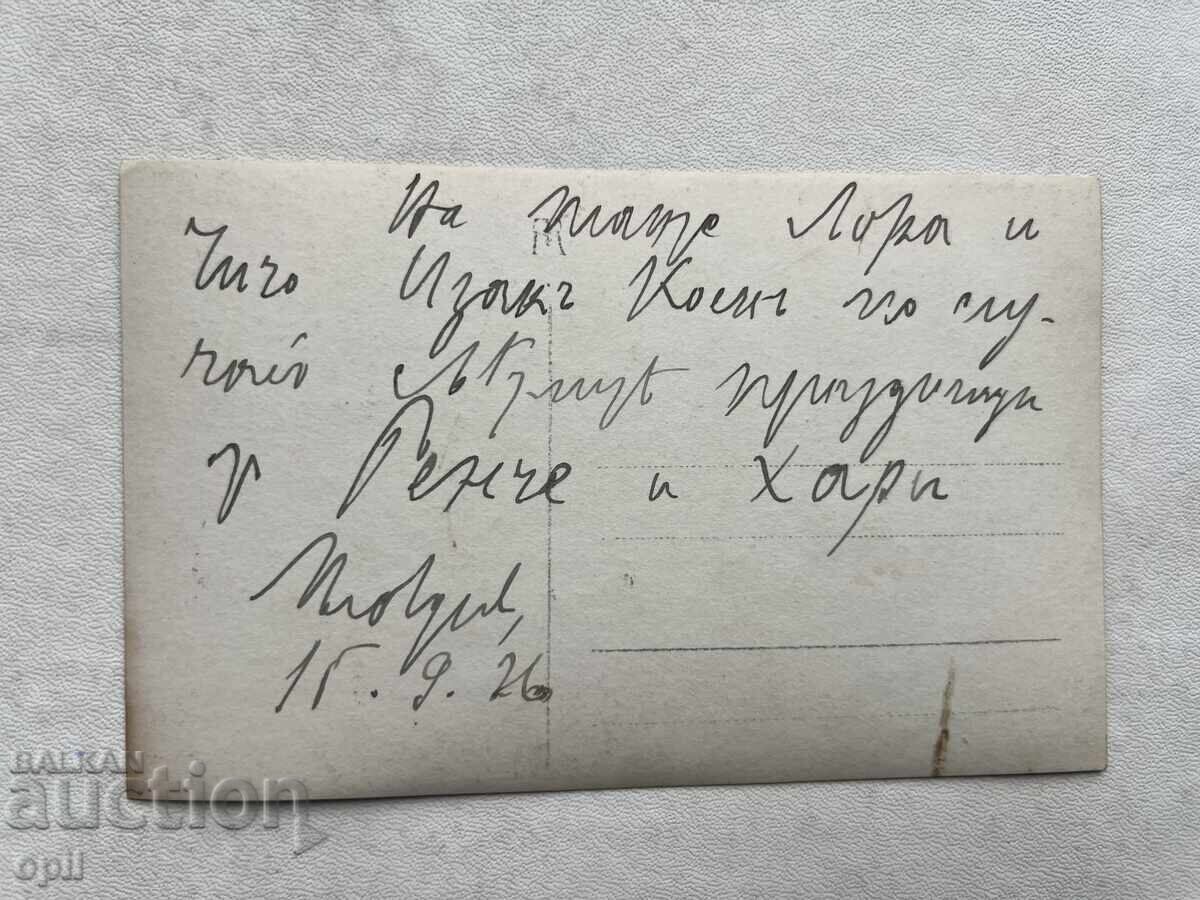 На танте Лора и
Чичо Изакъ Коенъ по слу-
чай праздници
от Ренче и Хари
Пловдив,
15. 9. 26
BALKAN
auction
opil